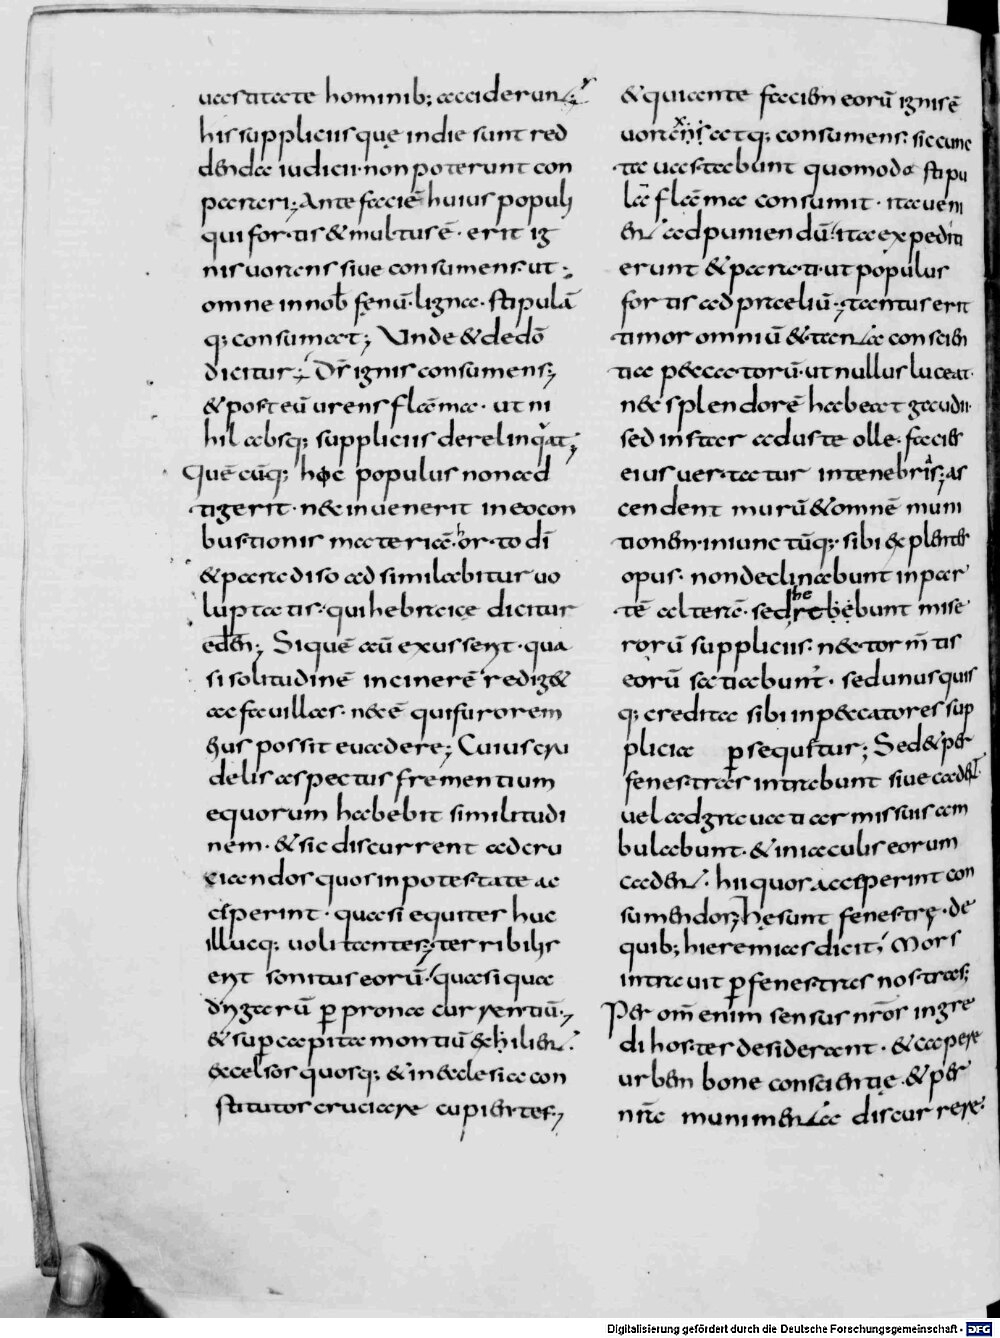 uastitate hominib; acciderunt
his suppliciis que in die sunt red
denda iudicii. non poterunt con
parari; Ante faciē huius populi
qui fortis & multus ē. erit ig
nis uorans siue consumens. ut
omne in nob fenū. ligna. stipulā
q; consumat; Unde & de dō
dicitur; Dr̄ ignis consumens;
& post eū urens flāma. ut ni
hil absq; suppliciis derelinquat;
Quē cūq; hoc populus non ad
tigerit. nec inuenerit in eo con
bustionis materiā. hortō dī
& paradiso adsimilabitur uo
luptatis. qui hebraice dicitur
eden; Si quē aū exussent. qua
si solitudinē in cinerē redig&
ac fauillas. nec ē qui furorem
eius possit euadere; Cuius cru
delis aspectus frementium
equorum habebit similitudi
nem. & sic discurrent ad cru
ciandos quos in potestate ac
ceperint. quasi equites huc
illucq; uolitantes; terribilis
erit sonitus eorū. quasi qua
drigarū p prona currentiū;
& sup capita montiū & hilien.
excelsos quosq; & in ecclesia con
stitutos cruciare cupientes;
& qui ante faciēn eorū ignis ē
uorans atq; consumens. sic cunc
ta uastabunt quomodo stipu
lā flāmma consumit. ita ueni
en ad puniendū. ita expediti
erunt & parati. ut populus
fortis ad praeliū; tantus erit
timor omniū & tanta conscien
tia peccatorū. ut nullus luceat.
nec splendorē habeat gaudii.
sed instar adustae olle. facies
eius uertatur in tenebris; as
cendent murū & omnē muni
tionem. iniunctūq; sibi explentes
opus. non declinabunt in par
tē alterā. sed rhebebunt mise
rorū suppliciis. nec tormtis
eorū satiabunt. sed unusquis
q; credita sibi in peccatores sup
plicia psequitur; Sed & per
fenestras intrabunt siue caden
uel ad grauati armis suis am
bulabunt. & in iaculis eorum
caden. hii quos acceperint con
sumendos; He sunt fenestrę. de
quib; hieremias dicit; Mors
intrauit p fenestras nostras;
Per om̄ enim sensus nr̄os ingre
di hostes desiderant. & capere
urbem bone conscientie. & per
nr̄a munimenta discurrere.
Digitalisierung gefördert durch die Deutsche Forschungsgemeinschaft - DFG